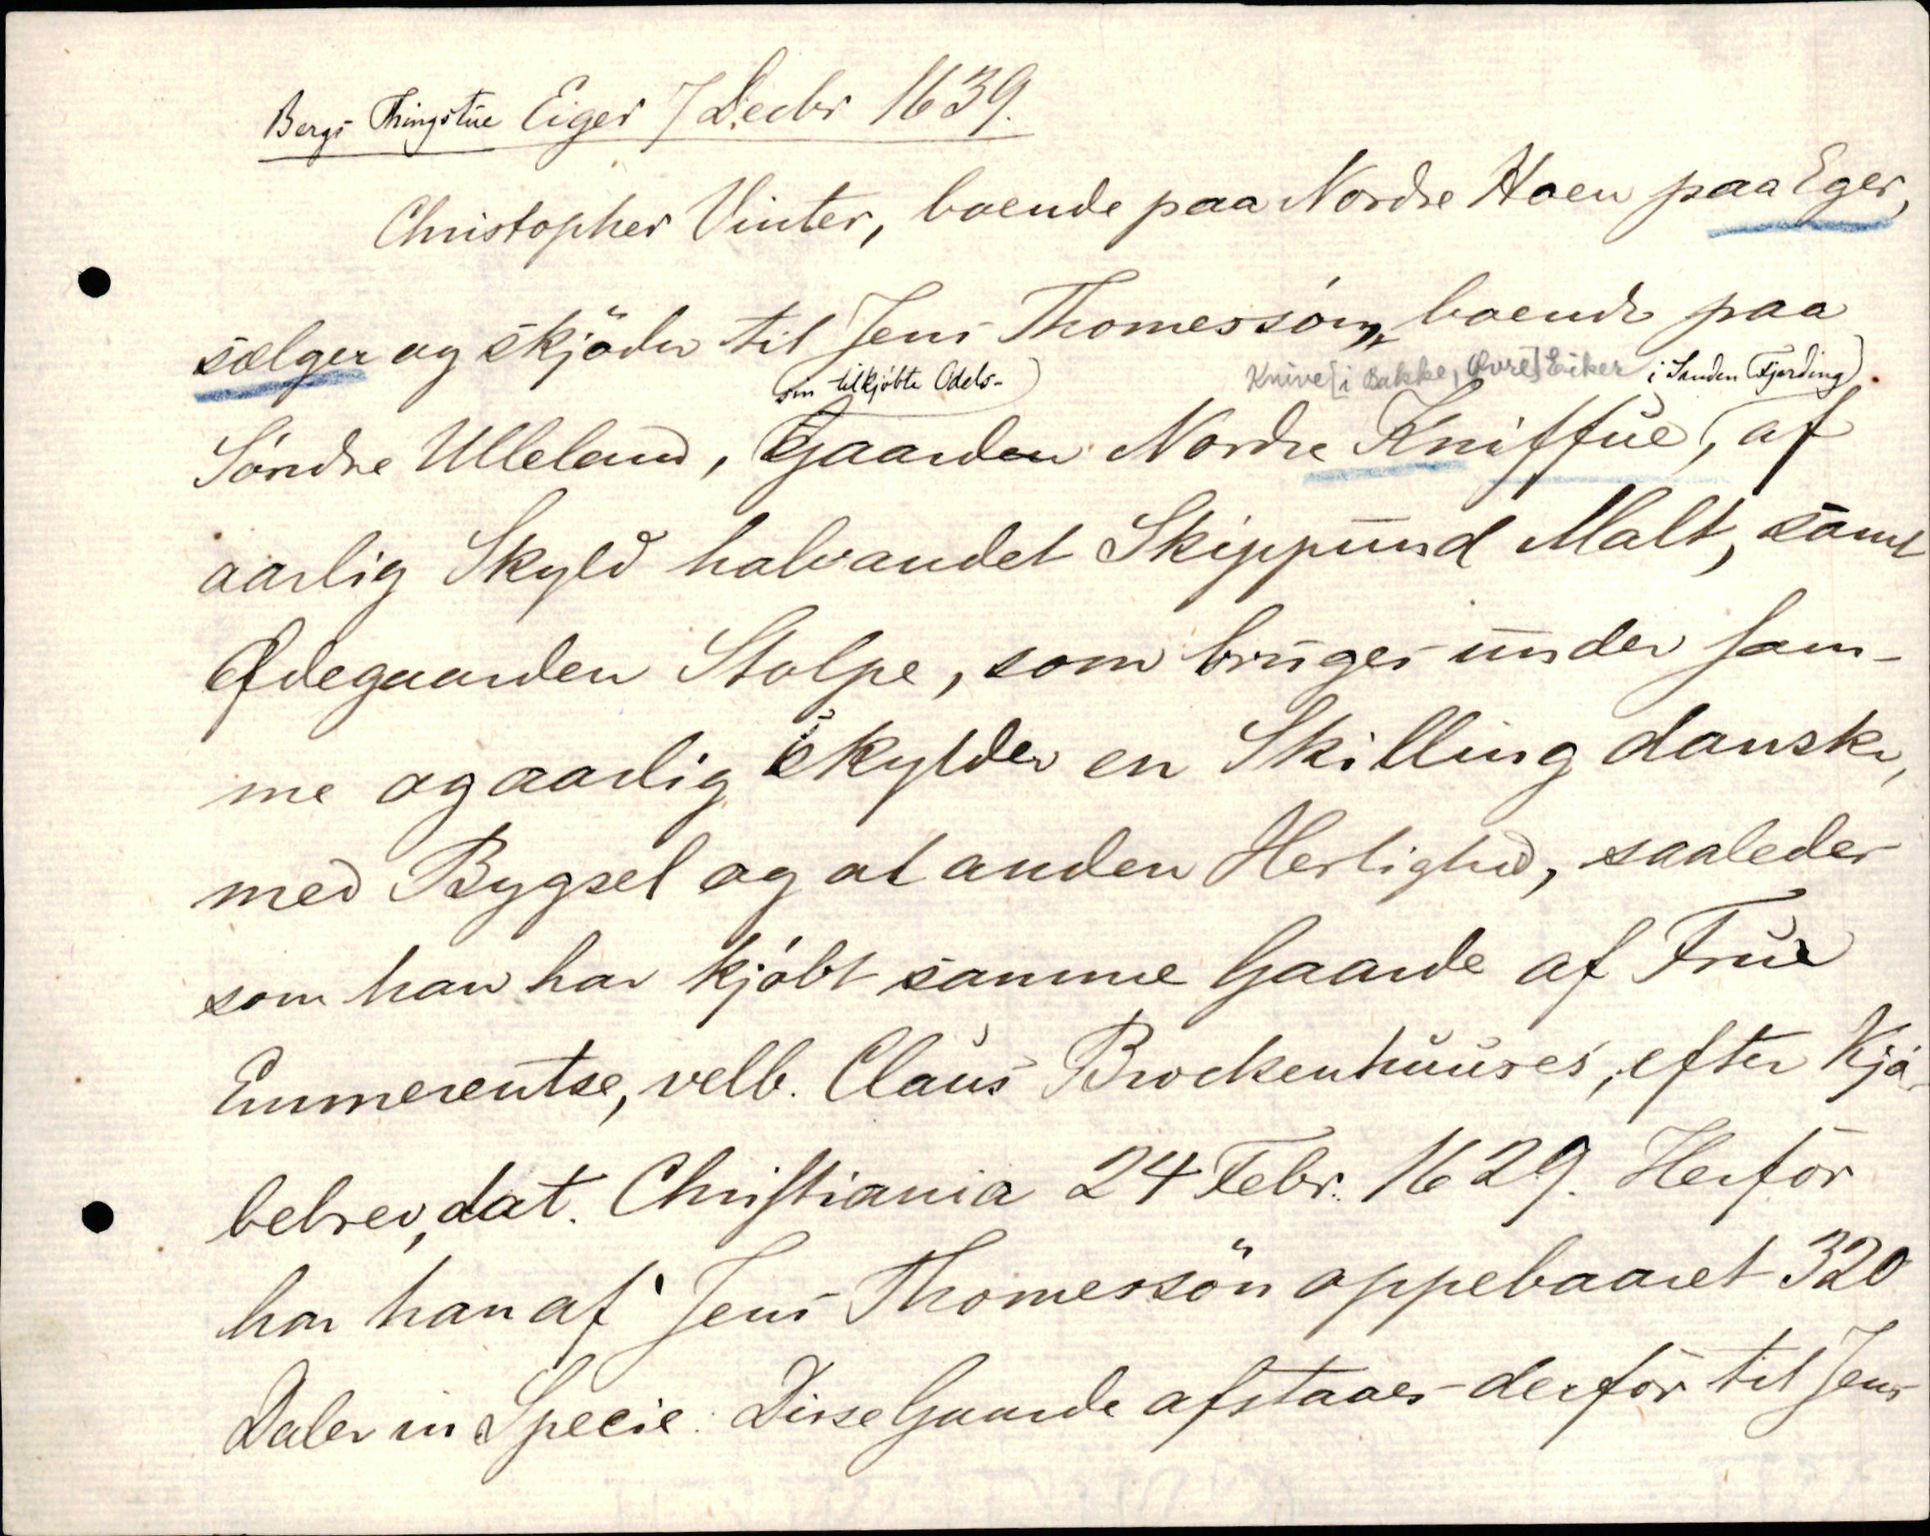 Bergs Thingstue Eiger 7 Decbr 1639.
Christopher Vinter, boende paa Nordre Hoen paa Eger,
sælger og skjöder til Jens Thomessön, boende paa
sin tilkjøbte Odels- Knive [i Bakke, Øvre] Eiker i Sanden Fjerding)
Söndre Ulleland, Gaarden Nordre Kniffue, af
aarlig Skyld halvandet Skippund Malt, samt
Ødegaarden Stolpe, som bruges under sam-
me og aarlig skylder en Skilling danske,
med Bygsel og al anden Herlighed, saaledes
som han har kjöbt samme Gaarde af Frue
Emmerentse, velb. Claus Brockenhuuses, efter Kjö-
bebrev, dat. Christiania 24 Febr. 1629. Herfor
har han af Jens Thomessön oppebaaret 320
Daler in Specie. Disse Gaarde afstaaes derfor til Jens